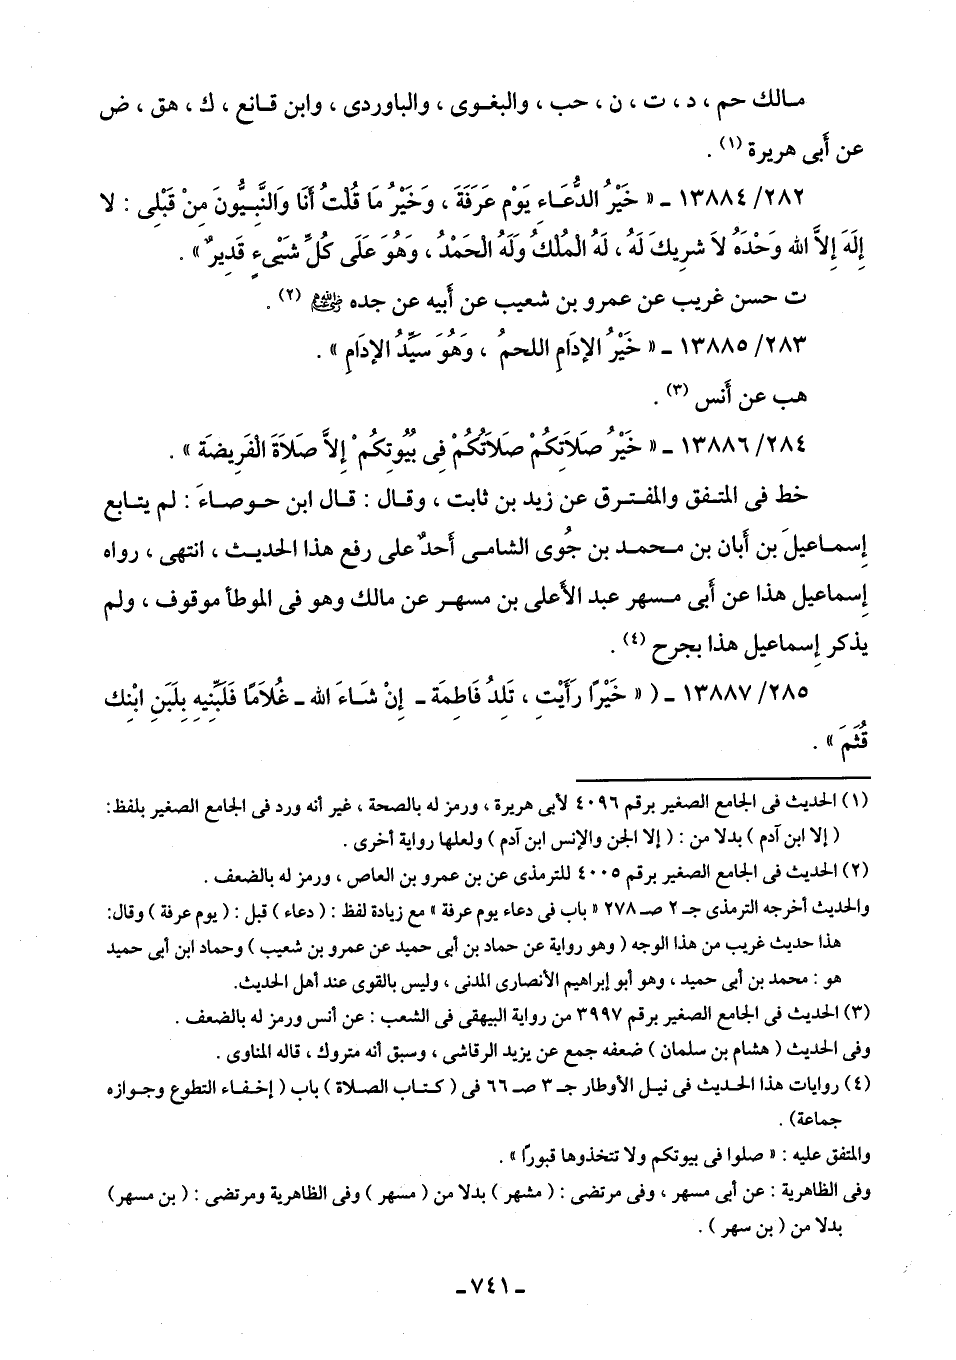 مالك حم ، د ، ت ، ن ، حب ، والبغوى ، والباوردى ، وابن قانع ، ك ، هق ، ض
عن أبى هريرة (١) .
٢٨٢/ ١٣٨٨٤ ـ « خَيْرُ الدُّعَاءِ يَوْم عَرَفَةَ ، وَخَيْرُ مَا قُلْتُ أَنَا وَالنَّبِيُّونَ مِنْ قَبْلِى : لا
إِلَهَ إِلاَّ الله وَحْدَهُ لاَ شرِيكَ لَهُ ، لَهُ الْمُلْكُ وَلَهُ الْحَمْدُ ، وَهُوَ عَلَى كُلِّ شَيْىءٍ قَدِيرٌ » .
ت حسن غريب عن عمرو بن شعيب عن أبيه عن جده (٢) .
٢٨٣/ ١٣٨٨٥ ـ « خَيْرُ الإدَامِ اللحمُ ، وَهُوَ سَيِّدُ الإدَامِ » .
هب عن أنس (٣) .
٢٨٤/ ١٣٨٨٦ ـ « خَيْرُ صَلاَتِكُمْ صَلاَتُكُمْ فِى بُيُوتِكُمْ إِلاَّ صَلاَةَ الْفَرِيضَة » .
خط فى المتفق والمفترق عن زيد بن ثابت ، وقال : قال ابن حوصاءَ : لم يتابع
إِسماعيلَ بن أبان بن محمد بن جُوى الشامى أحدٌ على رفع هذا الحديث ، انتهى ، رواه
إِسماعيل هذا عن أبى مسهر عبد الأعلى بن مسهر عن مالك وهو فى الموطأ موقوف ، ولم
يذكر إِسماعيل هذا بجرح (٤) .
٢٨٥/ ١٣٨٨٧ ـ ( « خَيْرًا رَأَيْتِ ، تَلِدُ فَاطِمَة ـ إِنْ شَاءَ الله ـ غُلاَمًا فَلَبِّنِيهِ بِلَبَنِ ابْنِك
قُثَمَ » .
(١) الحديث فى الجامع الصغير برقم ٤٠٩٦ لأبى هريرة ، ورمز له بالصحة ، غير أنه ورد فى الجامع الصغير بلفظ:
( إلا ابن آدم ) بدلا من : ( إلا الجن والإنس ابن آدم ) ولعلها رواية أخرى .
(٢) الحديث فى الجامع الصغير برقم ٤٠٠٥ للترمذى عن بن عمرو بن العاص ، ورمز له بالضعف .
والحديث أخرجه الترمذى جـ ٢ صـ ٢٧٨ « باب فى دعاء يوم عرفة » مع زيادة لفظ : ( دعاء ) قبل : ( يوم عرفة ) وقال:
هذا حديث غريب من هذا الوجه ( وهو رواية عن حماد بن أبى حميد عن عمرو بن شعيب ) وحماد ابن أبى حميد
هو : محمد بن أبى حميد ، وهو أبو إبراهيم الأنصارى المدنى ، وليس بالقوى عند أهل الحديث.
(٣) الحديث فى الجامع الصغير برقم ٣٩٩٧ من رواية البيهقى فى الشعب : عن أنس ورمز له بالضعف .
وفى الحديث ( هشام بن سلمان ) ضعفه جمع عن يزيد الرقاشى ، وسبق أنه متروك ، قاله المناوى .
(٤) روايات هذا الحديث فى نيل الأوطار جـ ٣ صـ ٦٦ فى ( كتاب الصلاة ) باب ( إخفاء التطوع وجوازه
جماعة) .
والمتفق عليه : « صلوا فى بيوتكم ولا تتخذوها قبورًا » .
وفى الظاهرية : عن أبى مسهر ، وفى مرتضى : ( مشهر ) بدلا من ( مسهر ) وفى الظاهرية ومرتضى : ( بن مسهر)
بدلا من ( بن سهر ) .
ـ ٧٤١ ـ